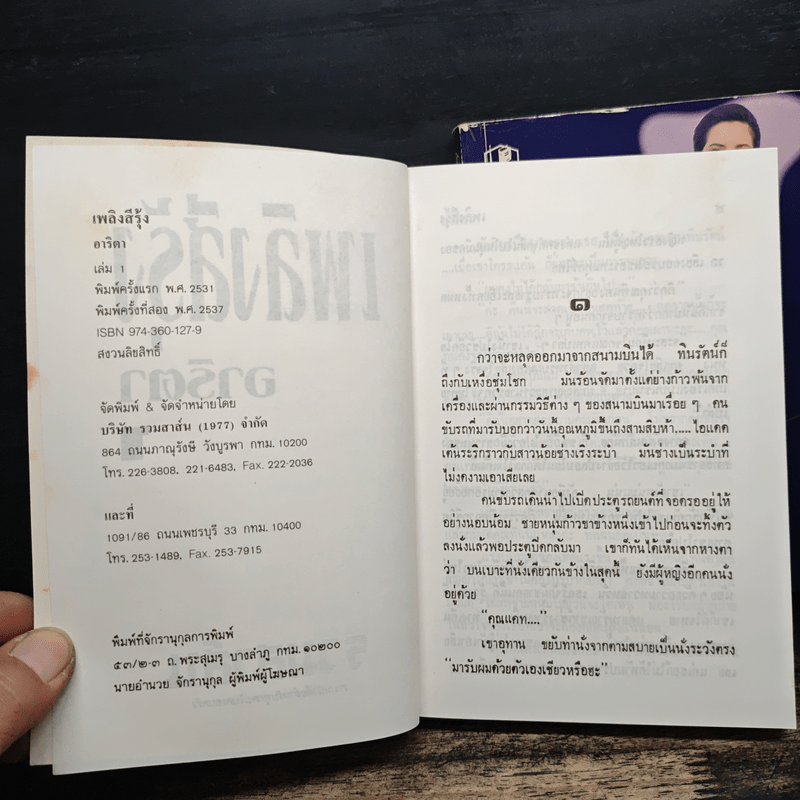 เพลิงสีรุ้ง
อาริตา
เล่ม 1
พิมพ์ครั้งแรก พ.ศ. 2531
พิมพ์ครั้งที่สอง พ.ศ. 2537
ISBN 974-360-127-9
สงวนลิขสิทธิ์
จัดพิมพ์ & จัดจำหน่ายโดย
บริษัท รวมสาส์น (1977) จำกัด
864 ถนนภาณุรังษี วังบูรพา กทม. 10200
โทร. 226-3808, 221-6483, Fax. 222-2036
และที่
1091/86 ถนนเพชรบุรี 33 กทม. 10400
โทร. 253-1489, Fax. 253-7915
พิมพ์ที่จักรานุกูลการพิมพ์
๕๓/๒-๓ ถ. พระสุเมรุ บางลำภู กทม. ๑๐๒๐๐
นายอำนวย จักรานุกูล ผู้พิมพ์ผู้โฆษณา
๑
กว่าจะหลุดออกมาจากสนามบินได้ ทินรัตน์ก็
ถึงกับเหงื่อชุ่มโชก มันร้อนจัดมาตั้งแต่ย่างก้าวพ้นจาก
เครื่องและผ่านกรรมวิธีต่าง ๆ ของสนามบินมาเรื่อย ๆ คน
ขับรถที่มารับบอกว่าวันนี้อุณหภูมิขึ้นถึงสามสิบห้า..... ไอแดด
เต้นระริกราวกับสาวน้อยช่างเริงระบำ มันช่างเป็นระบำที่
ไม่งดงามเอาเสียเลย
คนขับรถเดินนำไปเปิดประตูรถยนต์ที่จอดรออยู่ให้
อย่างนอบน้อม ชายหนุ่มก้าวขาข้างหนึ่งเข้าไปก่อนจะทิ้งตัว
ลงนั่งแล้วพอประตูปิดกลับมา เขาก็ทันได้เห็นจากหางตา
ว่า บนเบาะที่นั่งเดียวกันข้างในสุดนี้ ยังมีผู้หญิงอีกคนนั่ง
อยู่ด้วย
“คุณแคท....”
เขาอุทาน ขยับท่านั่งจากตามสบายเป็นนั่งระวังตรง
“มารับผมด้วยตัวเองเชียวหรือฮะ”